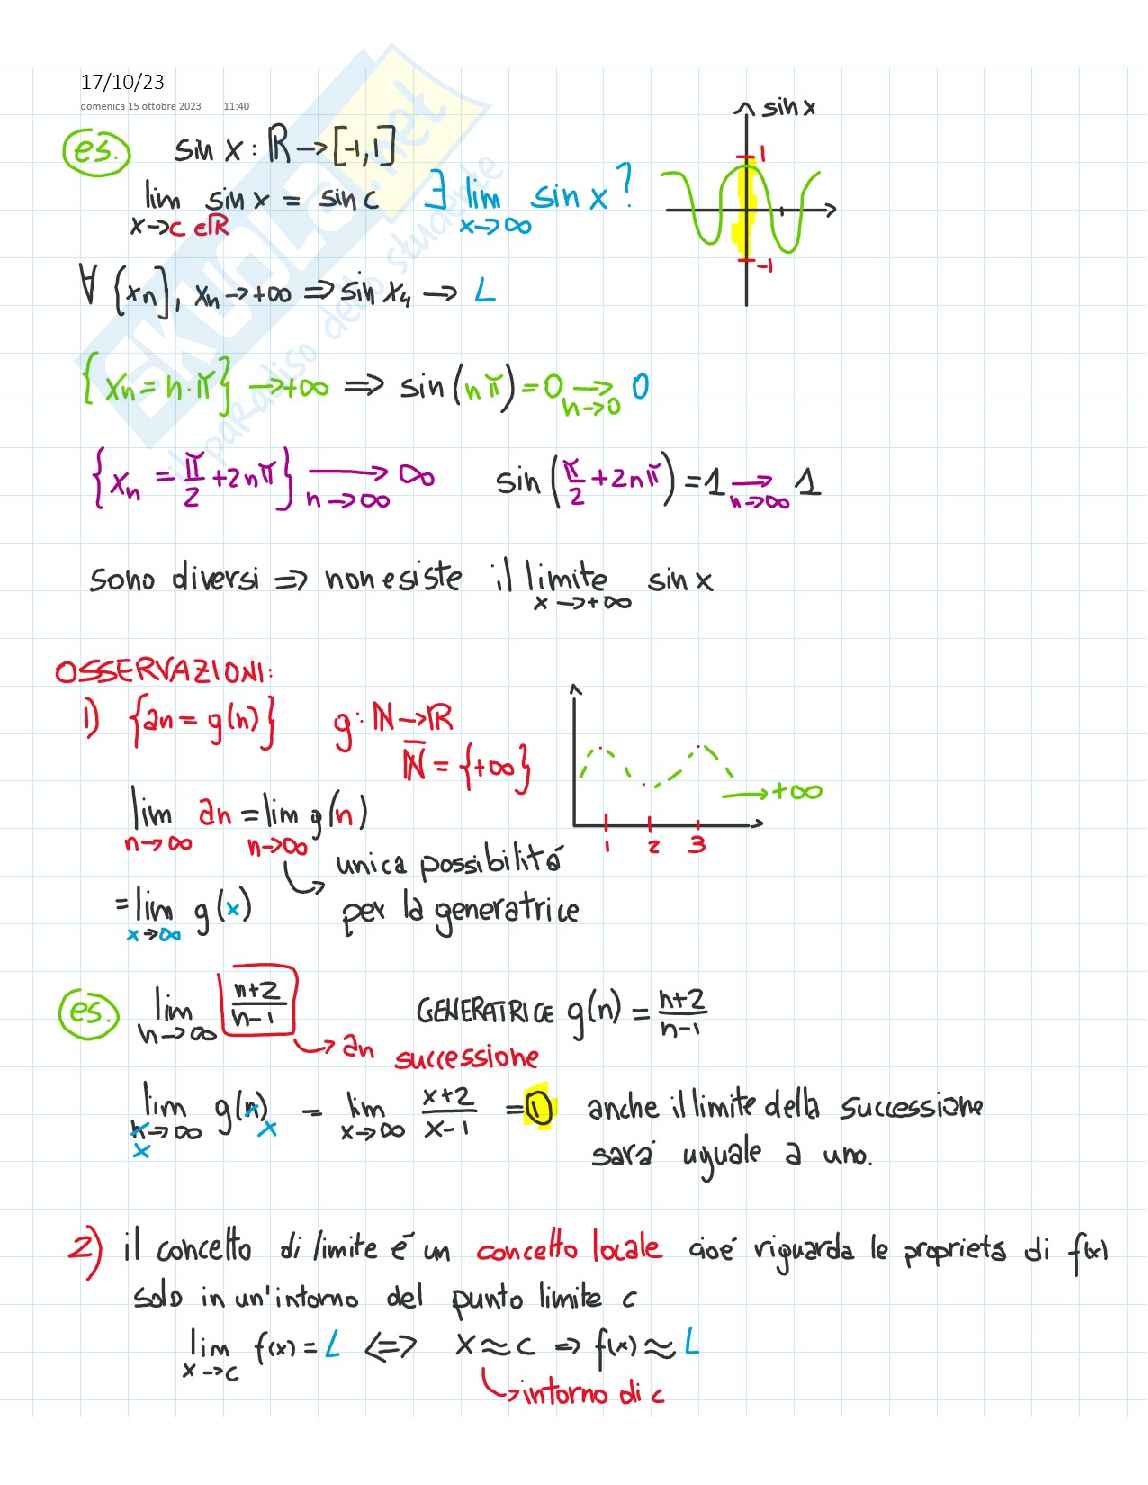 17/10/23
domenica 15 ottobre 2023 11:40
SKUOLA.net
il paradiso dello studente
es. sin x : ℝ → [-1,1]
lim x→c∈ℝ sin x = sin c ∃ lim x→∞ sin x ?
sin x
1
-1
∀ {xn}, xn → +∞ ⇒ sin xn → L
{xn = n·π} → +∞ ⇒ sin(nπ) = 0 →n→0 0
{xn = π/2 + 2nπ} →n→∞ ∞ sin(π/2 + 2nπ) = 1 →n→∞ 1
sono diversi ⇒ non esiste il limite x→+∞ sin x
OSSERVAZIONI:
1) {an = g(n)} g : ℕ → ℝ
ℕ̅ = {+∞}
→ +∞
1 2 3
lim n→∞ an = lim n→∞ g(n)
↪ unica possibilitá
per la generatrice
= lim x→∞ g(x)
es. lim n→∞ (n+2)/(n-1) GENERATRICE g(n) = (n+2)/(n-1)
↪ an successione
lim n→∞ x g(n) x = lim x→∞ (x+2)/(x-1) = 1 anche il limite della successione
sará uguale a uno.
2) il concetto di limite é un concetto locale cioé riguarda le proprietá di f(x)
solo in un'intorno del punto limite c
lim x→c f(x) = L ⇔ x ≈ c ⇒ f(x) ≈ L
↪ intorno di c